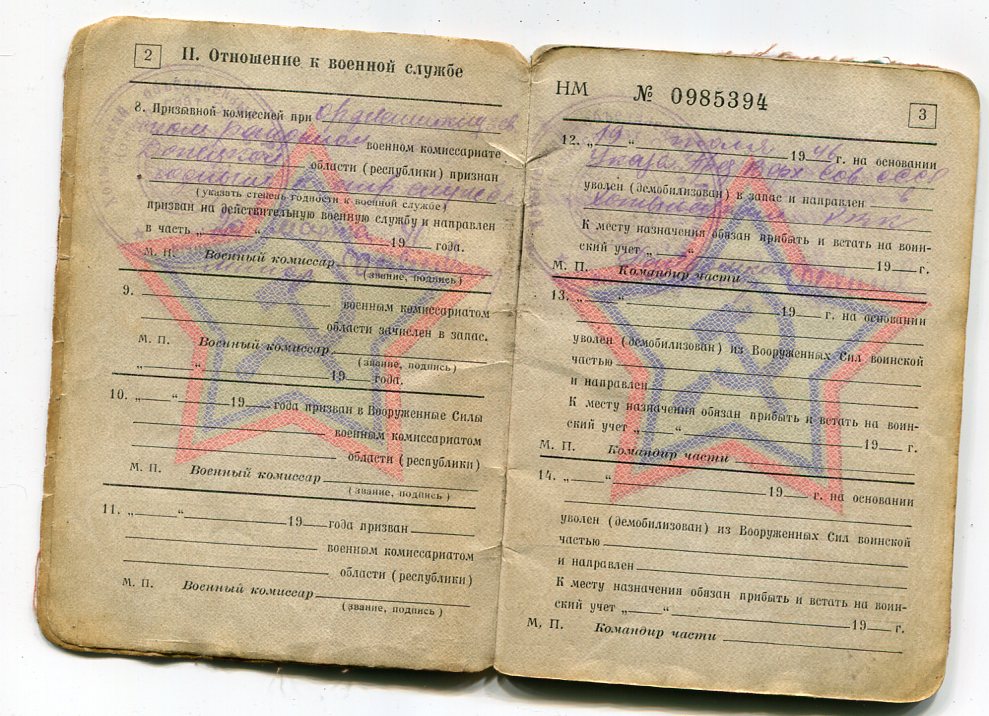 2
II. Отношение к военной службе
8. Призывной комиссией при Орджоникидзев
ском Районном
военном комиссариате
Донецкой
области (республики) признан
годный к службе
(указать степень годности к военной службе)
призван на действительную военную службу и направлен
в часть „ “ 19 года.
М. П. Военный комиссар
(звание, подпись)
9.
военным комиссариатом
области зачислен в запас.
М. П. Военный комиссар
(звание, подпись)
„ “ 19 года.
10. „ “ 19 года призван в Вооруженные Силы
военным комиссариатом
области (республики)
М. П. Военный комиссар
(звание, подпись)
11. „ “ 19 года призван
военным комиссариатом
области (республики)
М. П. Военный комиссар
(звание, подпись)
НМ № 0985394
3
12. „19“ июля 1946 г. на основании
Указа През Верх Сов СССР
уволен (демобилизован) в запас и направлен в
К месту назначения обязан прибыть и встать на воин-
ский учет „ “ 19 г.
М. П. Командир части
13. „ “ 19 г. на основании
уволен (демобилизован) из Вооруженных Сил воинской
частью
и направлен
К месту назначения обязан прибыть и встать на воин-
ский учет „ “ 19 г.
М. П. Командир части
14. „ “ 19 г. на основании
уволен (демобилизован) из Вооруженных Сил воинской
частью
и направлен
К месту назначения обязан прибыть и встать на воин-
ский учет „ “ 19 г.
М. П. Командир части